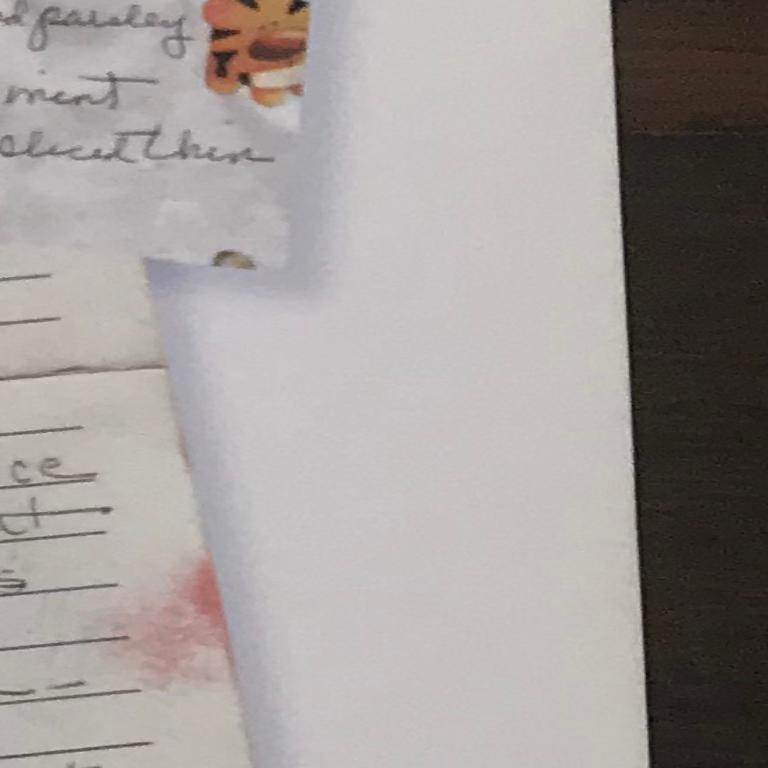 parsley
mint
sliced thin
ce